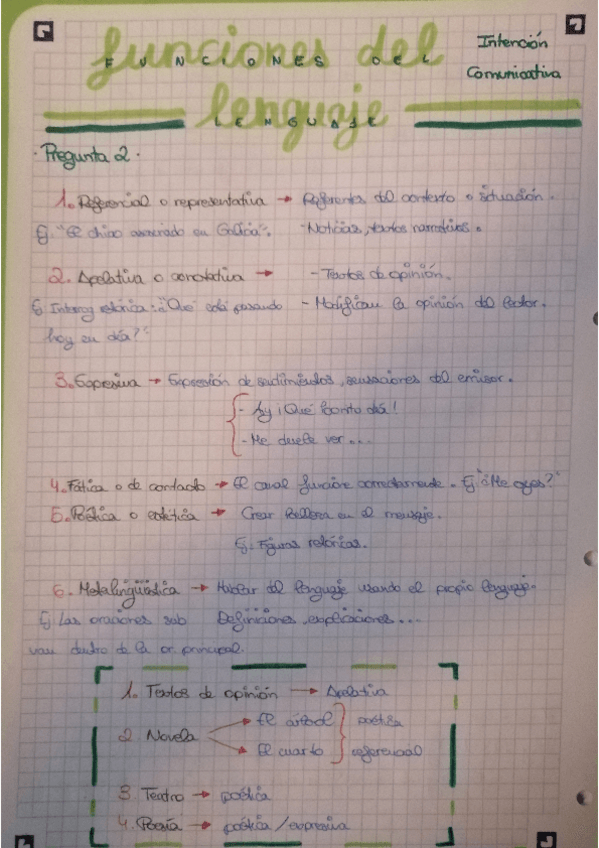 funciones del
FUNCIONES DEL
Intención
Comunicativa
lenguaje
LENGUAJE
· Pregunta 2 ·
1. Referencial o representativa → Referentes del contexto o situación.
Ej. "El chino asesinado en Galicia". - Noticias, textos narrativos.
2. Apelativa o connotativa → - Textos de opinión.
Ej Interrog retórica: "¿Qué está pasando - Modifican la opinión del lector.
hoy en día?"
3. Expresiva → Expresión de sentimientos, sensaciones del emisor.
- Ay ¡Qué bonito día!
- Me duele ver...
4. Fática o de contacto → El canal funcione correctamente. Ej "¿Me oyes?"
5. Poética o estética → Crear belleza en el mensaje.
Ej: Figuras retóricas.
6. Metalingüística → Hablar del lenguaje usando el propio lenguaje.
Ej Las oraciones sub Definiciones, explicaciones...
van dentro de la or. principal.
1. Textos de opinión → Apelativa
2. Novela → El árbol } poética
→ El cuarto } referencial
3. Teatro → poética
4. Poesía → poética / expresiva